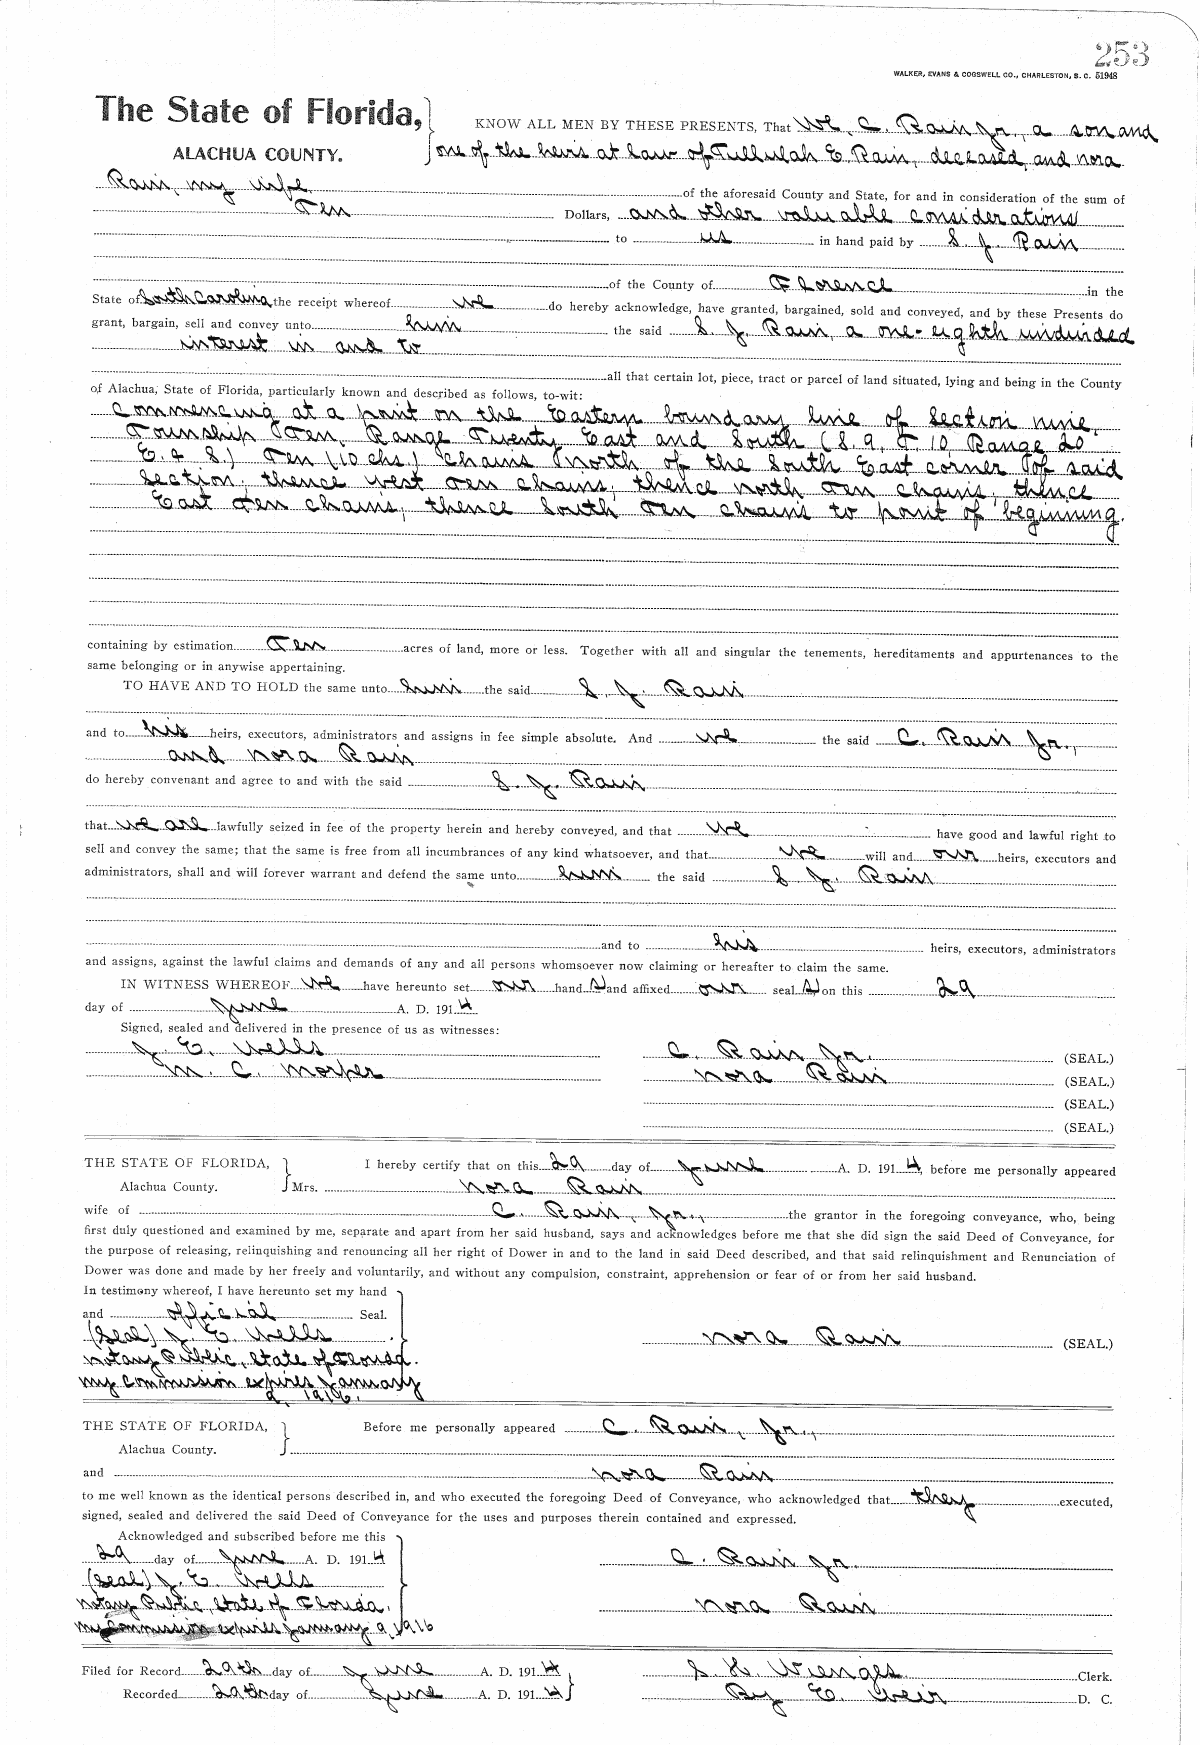 253
WALKER, EVANS & COGSWELL CO., CHARLESTON, S. C. 51948
The State of Florida,
ALACHUA COUNTY.
KNOW ALL MEN BY THESE PRESENTS, That We, C. Rain Jr., a son and
one of the heirs at law of Tullulah E. Rain, deceased, and Nora
Rain, my wife, of the aforesaid County and State, for and in consideration of the sum of
Ten Dollars, and other valuable considerations
to us in hand paid by S. J. Rain
of the County of Florence in the
State of South Carolina the receipt whereof we do hereby acknowledge, have granted, bargained, sold and conveyed, and by these Presents do
grant, bargain, sell and convey unto him the said S. J. Rain, a one-eighth undivided
interest in and to
all that certain lot, piece, tract or parcel of land situated, lying and being in the County
of Alachua, State of Florida, particularly known and described as follows, to-wit:
Commencing at a point on the Eastern boundary line of Section nine,
Township Ten, Range Twenty East and South (S. 9, T. 10, Range 20
E. & S.) Ten (10 chs.) chains North of the South East corner of said
Section, thence west Ten chains, thence north Ten chains, thence
East Ten chains, thence South Ten chains to point of beginning.
containing by estimation Ten acres of land, more or less. Together with all and singular the tenements, hereditaments and appurtenances to the
same belonging or in anywise appertaining.
TO HAVE AND TO HOLD the same unto him the said S. J. Rain
and to his heirs, executors, administrators and assigns in fee simple absolute. And we the said C. Rain Jr.,
and Nora Rain
do hereby convenant and agree to and with the said S. J. Rain
that we are lawfully seized in fee of the property herein and hereby conveyed, and that we have good and lawful right to
sell and convey the same; that the same is free from all incumbrances of any kind whatsoever, and that we will and our heirs, executors and
administrators, shall and will forever warrant and defend the same unto him the said S J. Rain
and to his heirs, executors, administrators
and assigns, against the lawful claims and demands of any and all persons whomsoever now claiming or hereafter to claim the same.
IN WITNESS WHEREOF we have hereunto set our hand s and affixed our seal s on this 29
day of June A. D. 1914
Signed, sealed and delivered in the presence of us as witnesses:
J. E. Wells C. Rain Jr. (SEAL.)
M. C. Nora Rain (SEAL.)
(SEAL.)
(SEAL.)
THE STATE OF FLORIDA, I hereby certify that on this 29 day of June A. D. 1914, before me personally appeared
Alachua County. Mrs. Nora Rain
wife of C. Rain, Jr., the grantor in the foregoing conveyance, who, being
first duly questioned and examined by me, separate and apart from her said husband, says and acknowledges before me that she did sign the said Deed of Conveyance, for
the purpose of releasing, relinquishing and renouncing all her right of Dower in and to the land in said Deed described, and that said relinquishment and Renunciation of
Dower was done and made by her freely and voluntarily, and without any compulsion, constraint, apprehension or fear of or from her said husband.
In testimony whereof, I have hereunto set my hand
and official Seal.
(Seal) J. E. Wells Nora Rain (SEAL)
Notary Public, State of Florida.
My commission expires January
9, 1916.
THE STATE OF FLORIDA, Before me personally appeared C. Rain, Jr.,
Alachua County.
and Nora Rain
to me well known as the identical persons described in, and who executed the foregoing Deed of Conveyance, who acknowledged that they executed,
signed, sealed and delivered the said Deed of Conveyance for the uses and purposes therein contained and expressed.
Acknowledged and subscribed before me this
29 day of June A. D. 1914 C. Rain Jr.
(Seal) J. E. Wells
Notary Public, State of Florida. Nora Rain
My Commission expires January 9, 1916
Filed for Record 29th day of June A. D. 1914 S. H. Wienges Clerk.
Recorded 29th day of June A. D. 1914 By E. Weir D. C.